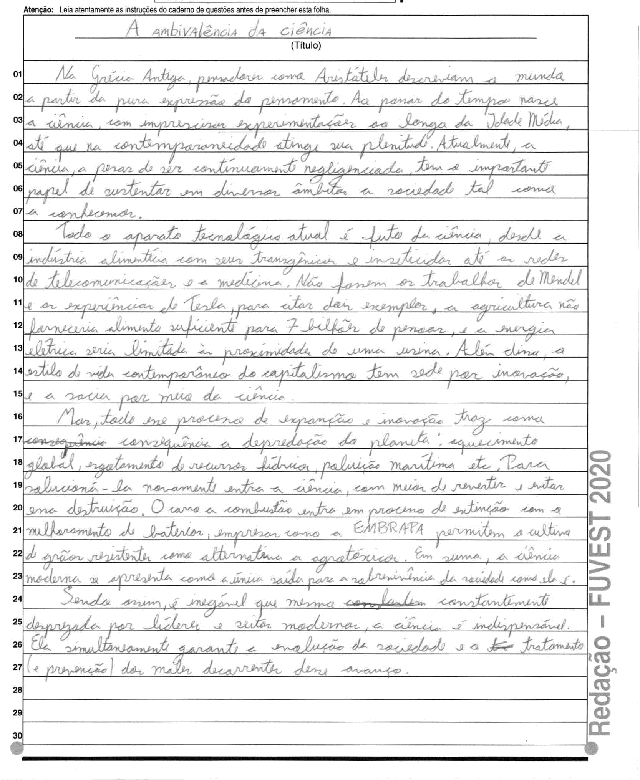 Atenção: Leia atentamente as instruções do caderno de questões antes de preencher esta folha.
A AMBIVALÊNCIA DA CIÊNCIA
(Título)
01 Na Grécia Antiga, pensadores como Aristóteles descreviam o mundo
02 a partir da pura expressão do pensamento. Ao passar do tempo nasce
03 a ciência, com imprescisas experimentações ao longo da Idade Média,
04 até que na contemporaneidade atinge sua plenitude. Atualmente, a
05 ciência, a pesar de ser contínuamente negligenciada, tem o importante
06 papel de sustentar em diversos âmbitos a sociedade tal como
07 a conhecemos.
08 Todo o aparato tecnológico atual é futo da ciência, desde a
09 indústria alimentícia com seus transgênicos e inseticidas até as redes
10 de telecomunicações e a medicina. Não fossem os trabalhos de Mendel
11 e as experiências de Tesla, para citar dois exemplos, a agricultura não
12 forneceria alimento suficiente para 7 bilhões de pessoas, e a energia
13 elétrica seria limitada às proximidades de uma usina. Além disso, o
14 estilo de vida contemporâneo do capitalismo tem sede por inovação,
15 e a sacia por meio da ciência.
16 Mas, todo esse processo de expanção e inovação traz como
17 consequência consequência a depredação do planeta: aquecimento
18 global, esgotamento de recursos hídricos, poluição marítima etc. Para
19 solucioná-los novamente entra a ciência, com meios de reverter e evitar
20 essa destruição. O carro a combustão entra em processo de extinção com o
21 melhoramento de baterias, empresas como a EMBRAPA permitem o cultivo
22 de grãos resistentes como alternativa a agrotóxicos. Em suma, a ciência
23 moderna se apresenta como a única saída para a sobrevivência da sociedade como ela é.
24 Sendo assim, é inegável que mesmo constantemente
25 desprezada por líderes e seitas modernas, a ciência é indispensável.
26 Ela simultaneamente garante a evolução da sociedade e o tratamento
27 (e prevenção) dos males decorrentes desse avanço.
28
29
30
Redação – FUVEST 2020